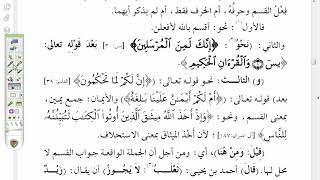 فِعْلُ القسم وحرفُه، أم الحرف فقط، أم لم يذكر أيهما.
فالأول: نحو: أقسم بالله لأفعلن.
والثاني: (نحو: ﴿إِنَّكَ لَمِنَ الْمُرْسَلِينَ﴾ بعد قوله تعالى:
يسٓ ۝ وَالْقُرْءَانِ الْحَكِيمِ﴾
(و) الثالث: نحو قوله تعالى: (﴿إِنَّ لَكُمْ لَمَا تَحْكُمُونَ﴾
بعد) قوله تعالى: ﴿أَمْ لَكُمْ أَيْمَٰنٌ عَلَيْنَا بَٰلِغَةٌ﴾ والأيمان: جمع يمين،
نحو: ﴿وَإِذْ أَخَذَ اللَّهُ مِيثَٰقَ الَّذِينَ أُوتُوا الْكِتَٰبَ لَتُبَيِّنُنَّهُ
لِلنَّاسِ﴾ لأن أخْذَ الميثاق بمعنى الاستحلاف.
(قيل: ومن هنا)، أي: ومن أجل أن الجملة الواقعة جواب القسم لا
محل لها، (قال يحيى: لا يجوز) أن يقال: (زيد